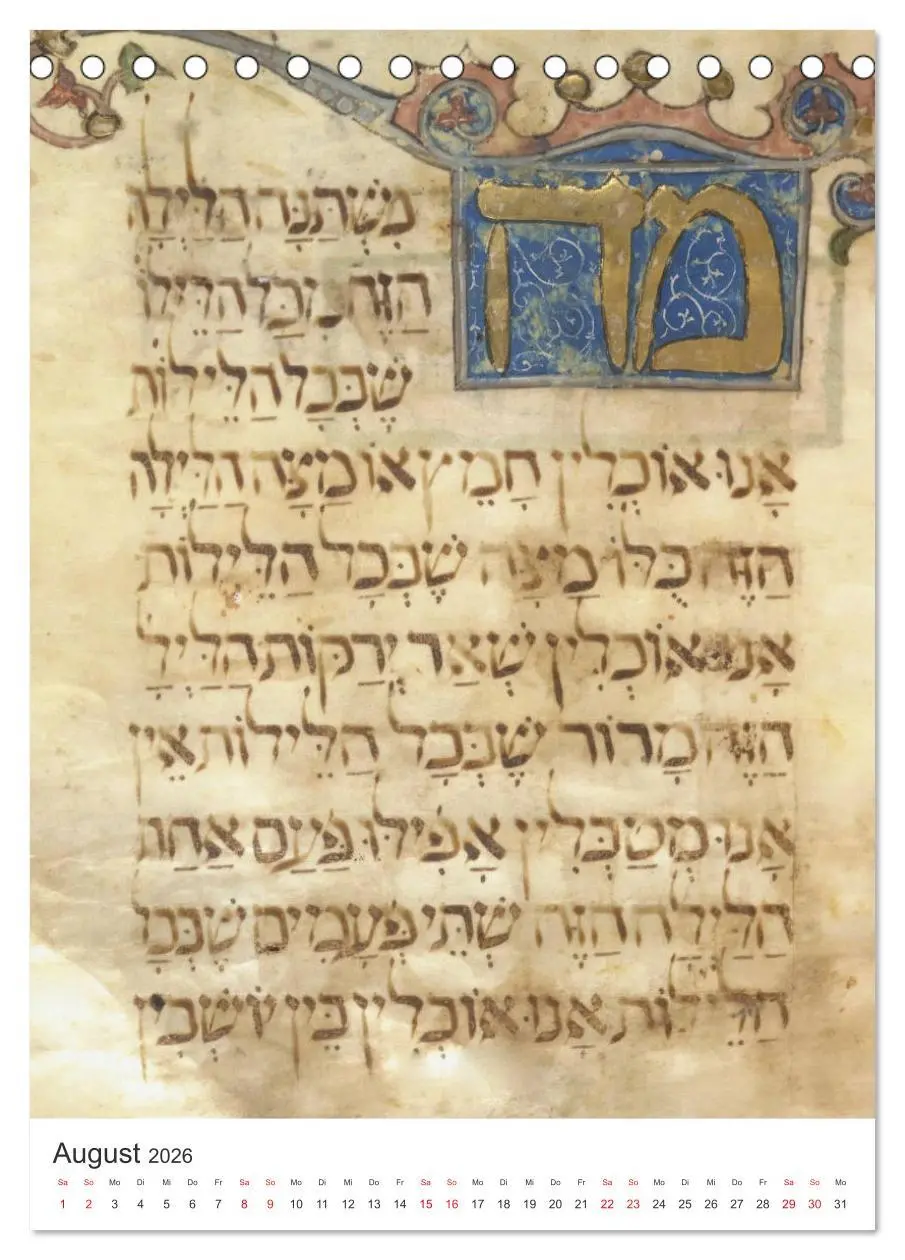 מה
מִשְׁתַּנָּה הַלַּיְלָה
הַזֶּה מִכָּל הַלֵּילוֹ
שֶׁבְּכָל הַלֵּילוֹת
אָנוּ אוֹכְלִין חָמֵץ אוֹ מַצָּה הַלַּיְלָה
הַזֶּה כֻּלּוֹ מַצָּה שֶׁבְּכָל הַלֵּילוֹת
אָנוּ אוֹכְלִין שְׁאַר יְרָקוֹת הַלַּיְלָ
הַזֶּה מָרוֹר שֶׁבְּכָל הַלֵּילוֹת אֵין
אָנוּ מְטַבְּלִין אֲפִילּוּ פַּעַם אַחַת
הַלַּיְלָה הַזֶּה שְׁתֵּי פְּעָמִים שֶׁבְּכָל
הַלֵּילוֹת אָנוּ אוֹכְלִין בֵּין יוֹשְׁבִין
August 2026
Sa So Mo Di Mi Do Fr Sa So Mo Di Mi Do Fr Sa So Mo Di Mi Do Fr Sa So Mo Di Mi Do Fr Sa So Mo
1 2 3 4 5 6 7 8 9 10 11 12 13 14 15 16 17 18 19 20 21 22 23 24 25 26 27 28 29 30 31